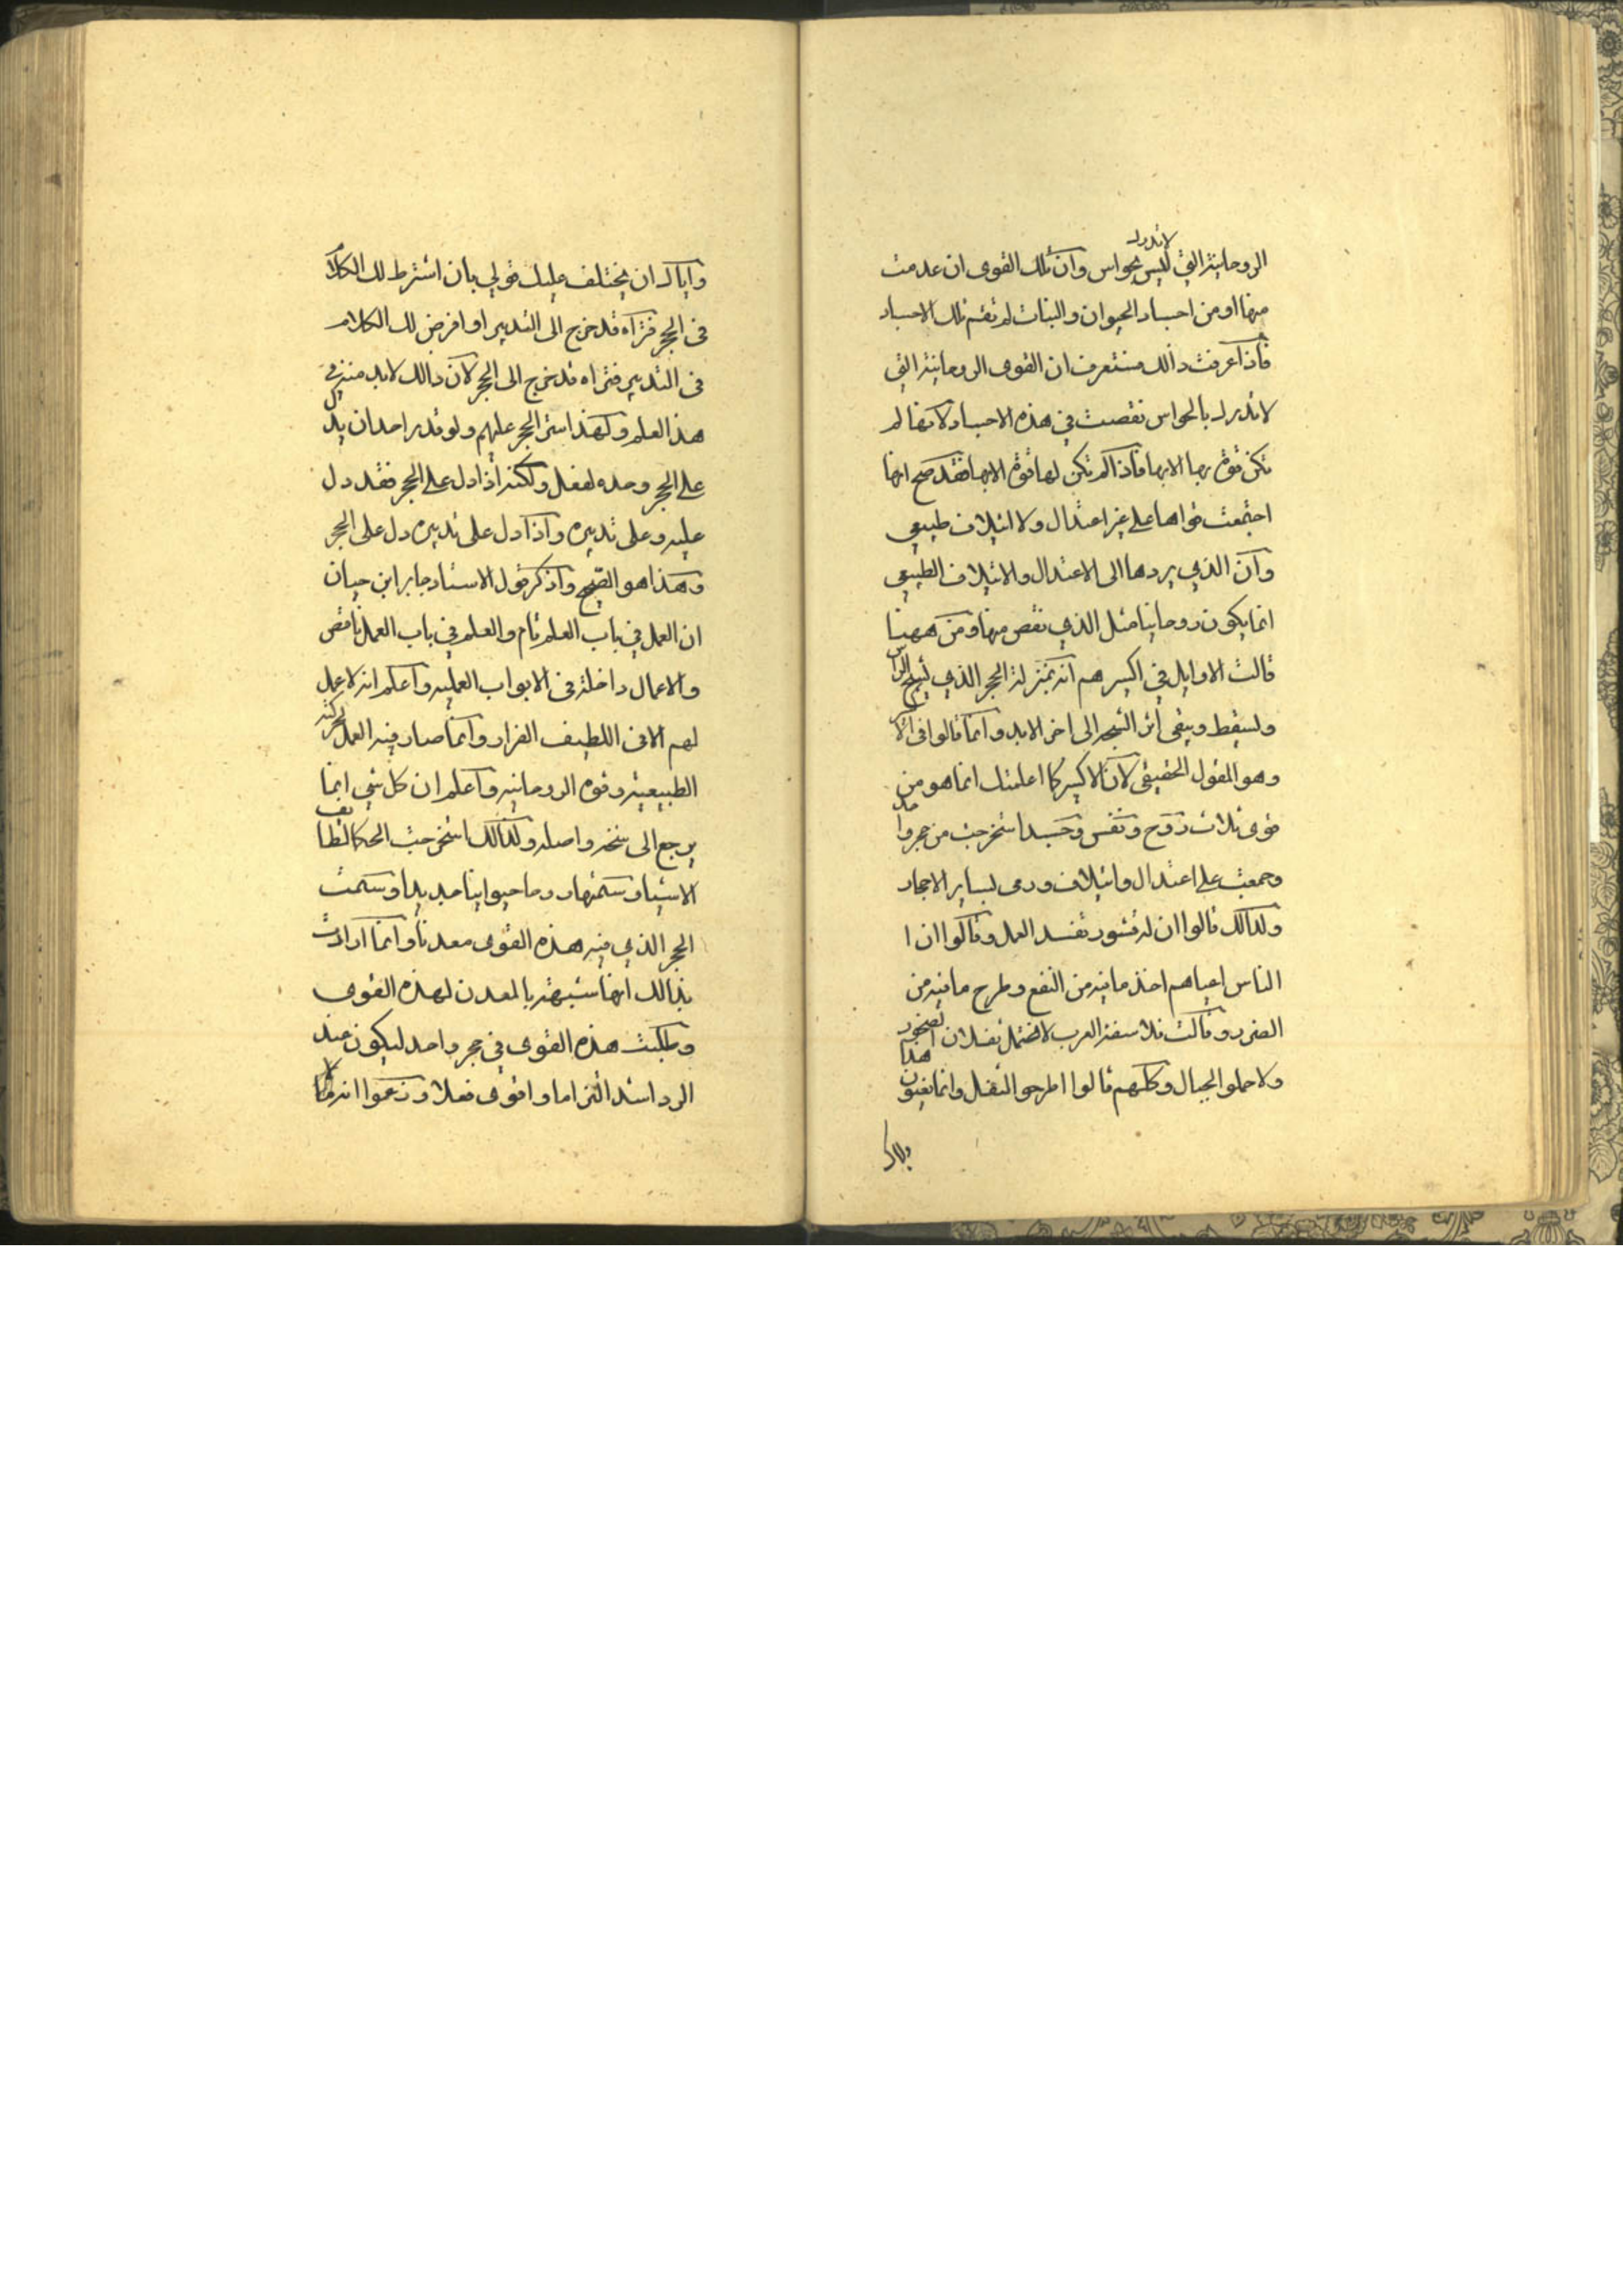 الروحانية التي ليس لاتدرك بحواس وان تلك القوى ان عدمت
منها او من اجساد الحيوان والنبات لم تقم تلك الاجساد
فاذا عرفت ذالك فستعرف ان القوى الروحانية التي
لا تدرك بالحواس نقصت في هذه الاجساد لانها لم
تكن قوة بها الا بها فاذا لم تكن لها قوة الا بها فقد صح انها
اجتمعت قواها على غير اعتدال ولا ائتلاف طبيعي
وان الذي يردها الى الاعتدال والائتلاف الطبيعي
انما يكون روحانيا مثل الذي نقص منها ومن ههنا
قالت الاوايل في اكسيرهم انه بمنزلة الحجر الذي يشج الراس
ويسقط ويبقى اثر الشجه الى اخر الابد وانما قالوا في
وهو القول الحقيقي لان الاكسير كما اعلمتك انما هو من
قوى ثلاث روح ونفس وجسد استخرجت من حجر واحد
وجمعت على اعتدال وائتلاف ودعى لساير الاحجار
ولذالك قالوا ان له قشور تفسد العمل وقالوا ان ا
الناس اعياهم اخذ ما فيه من النفع وطرح ما فيه من
الضرر وقالت فلاسفة العرب لا تحتمل ثقلان الصخور
ولا حملو الجبال وكلهم قالوا اطرحو الثقل وانما يعنون هذا
واياك ان يختلف عليك قولي بان اشترط لك الكلام
في الحجر فتراه قد خرج الى التدبير او افرض لك الكلام
في التدبير فتراه قد خرج الى الحجر لان ذالك لابد منه في
هذ العلم ولهذا استر الحجر عليهم ولو قدر احد ان يدل
على الحجر وحده لفعل ولكنه اذا دل على الحجر فقد دل
عليه وعلى تدبيره واذا دل على تدبيره دل على الحجر
وهذا هو الصحيح واذكر قول الاستاد جابر ابن حيان
ان العمل في باب العلم تام والعلم في باب العمل ناقص
والاعمال داخلة في الابواب العلميه واعلم انه لا عمل
لهم الا في اللطيف الفرار وانما صار فيه العمل بحركته
الطبيعية وقوه الروحانيه واعلم ان كل شي انما
يرجع الى سنخه واصله ولذالك استخرجت الحكما لطايف
الاشيا وسمتها روحا حيوانيا جديدا وسمت
الحجر الذي فيه هذه القوى معدنا وانما ارادت
بذالك انها شبهته بالمعدن لهذه القوى
وطلبت هذه القوى في حجر واحد ليكون عند
الرد اشد التزاما واقوى فعلا وزعموا انه